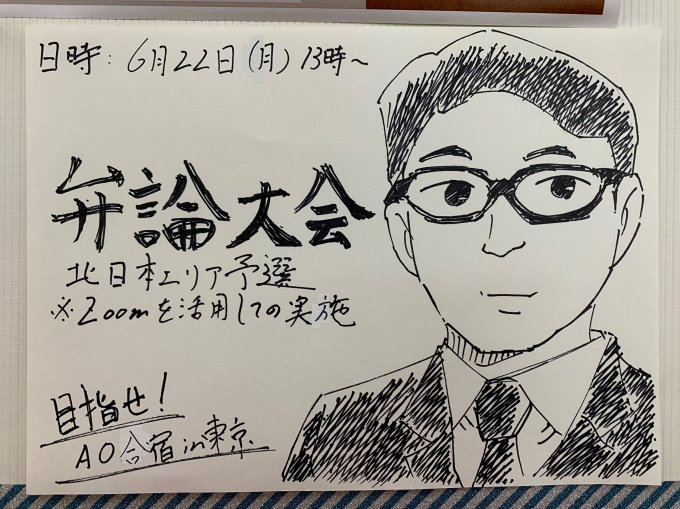 日時：6月22日(月) 13時〜
弁論大会
北日本エリア予選
※Zoomを活用しての実施
目指せ！
AO合宿in東京